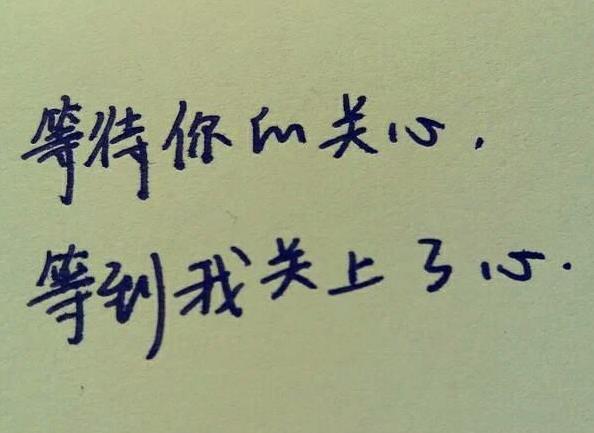 等待你的关心,
等到我关上了心.